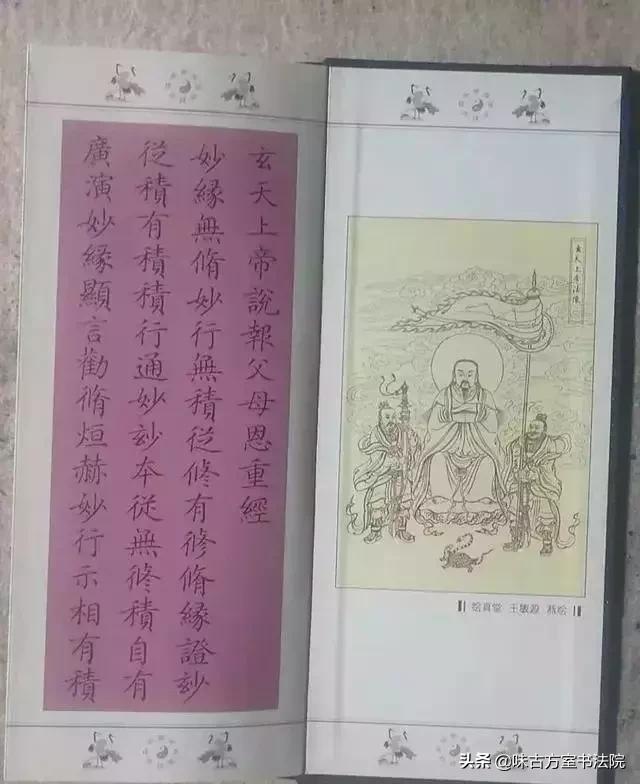 玄天上帝
绘真堂
玄天上帝說報父母恩重經
妙緣無脩妙行無積從修有修脩緣證玅
從積有積積行通妙玅本從無修積自有
廣演妙緣顯言勸脩烜赫妙行示相有積
头条 @味古方室书法院